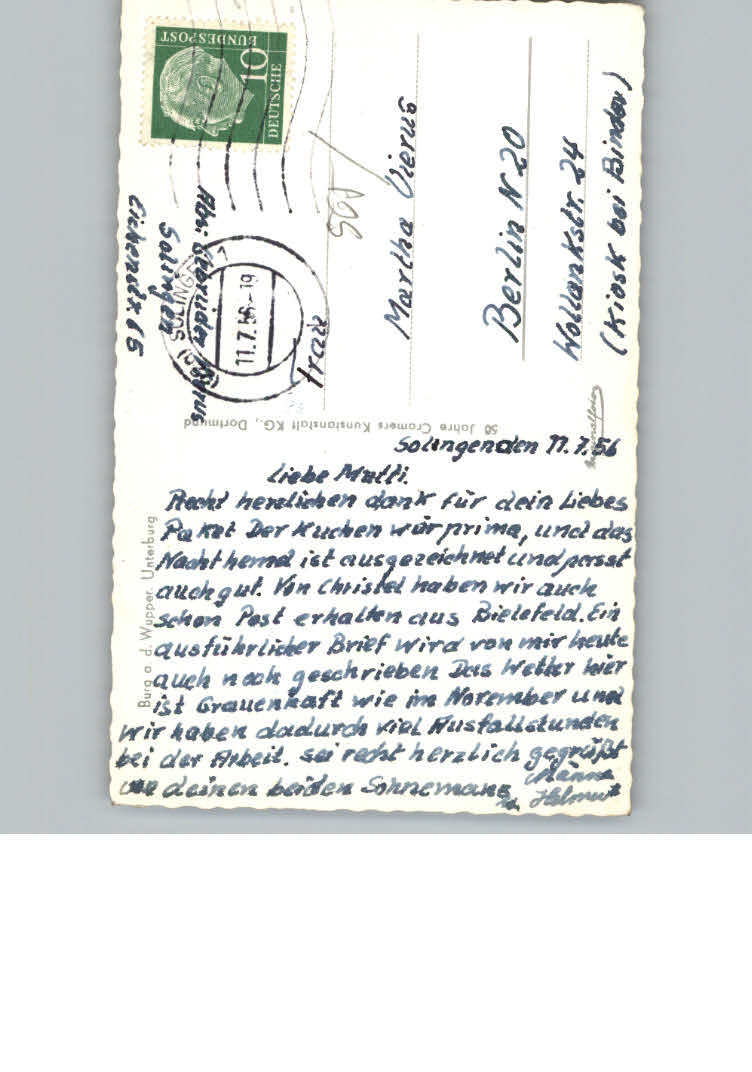 Solingen den 11.7.56
Liebe Mutti.
Recht herzlichen dank für dein Liebes
Paket Der Kuchen war prima, und das
Nachthemd ist ausgezeichnet und passt
auch gut. Von Christel haben wir auch
schon Post erhalten aus Bielefeld. Ein
ausführlicher Brief wird von mir heute
auch noch geschrieben Das Wetter hier
ist Grauenhaft wie im November und
wir haben dadurch viel Ausfallstunden
bei der Arbeit. sei recht herzlich gegrüßt
von deinen beiden Söhnemans
Helmut
Burg a. d. Wupper. Unterburg
50 Jahre Cramers Kunstanstalt KG., Dortmund
DEUTSCHE
BUNDESPOST
10
SOLINGEN
11.7.56-19
Abs: Gebrüder Vierus
Solingen
Eichenstr. 65
Frau
Martha Vierus
Berlin N 20
Wollankstr. 24
(Kiosk bei Binder)